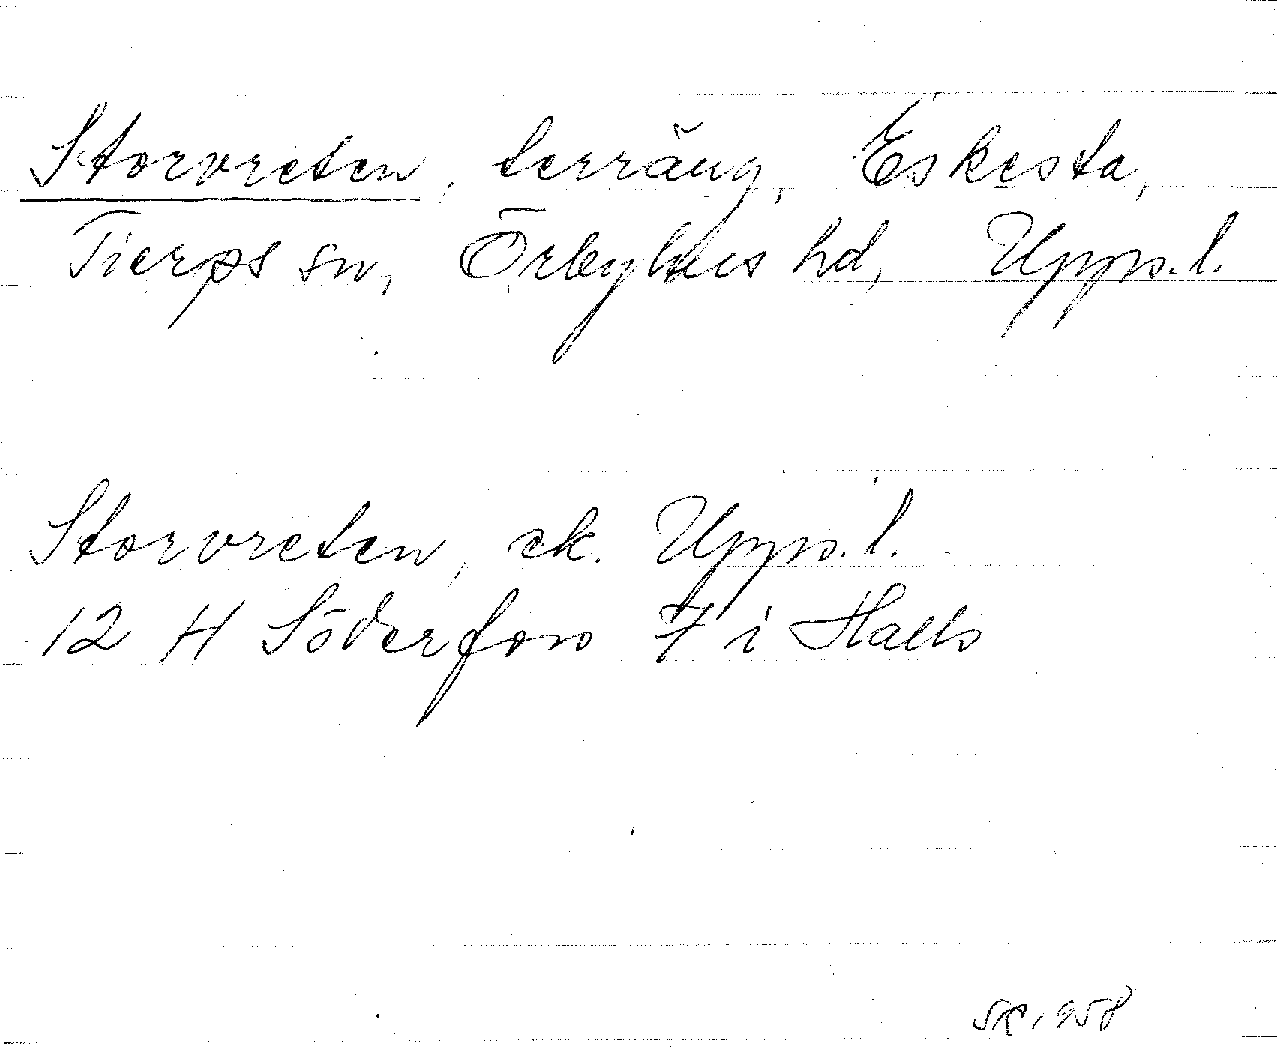 Storvreten, terräng, Eskesta,
Tierps sn, Örbyhus hd, Upps.l.
Storvreten, ek. Upps.l.
12 H Söderfors 7 i Halls